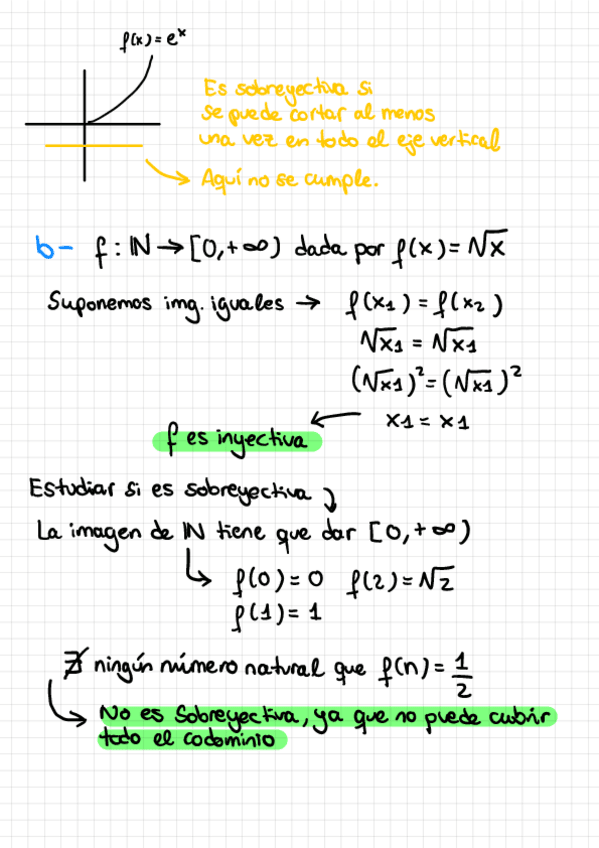 f(x) = e^x
Es sobreyectiva si
se puede cortar al menos
una vez en todo el eje vertical
Aquí no se cumple.
b- f : ℕ → [0,+∞) dada por f(x) = √x
Suponemos img. iguales → f(x₁) = f(x₂)
√x₁ = √x₁
(√x₁)² = (√x₁)²
x₁ = x₁
f es inyectiva
Estudiar si es sobreyectiva
La imagen de ℕ tiene que dar [0,+∞)
f(0) = 0 f(2) = √2
f(1) = 1
∄ ningún número natural que f(n) = 1/2
No es sobreyectiva, ya que no puede cubrir
todo el codominio